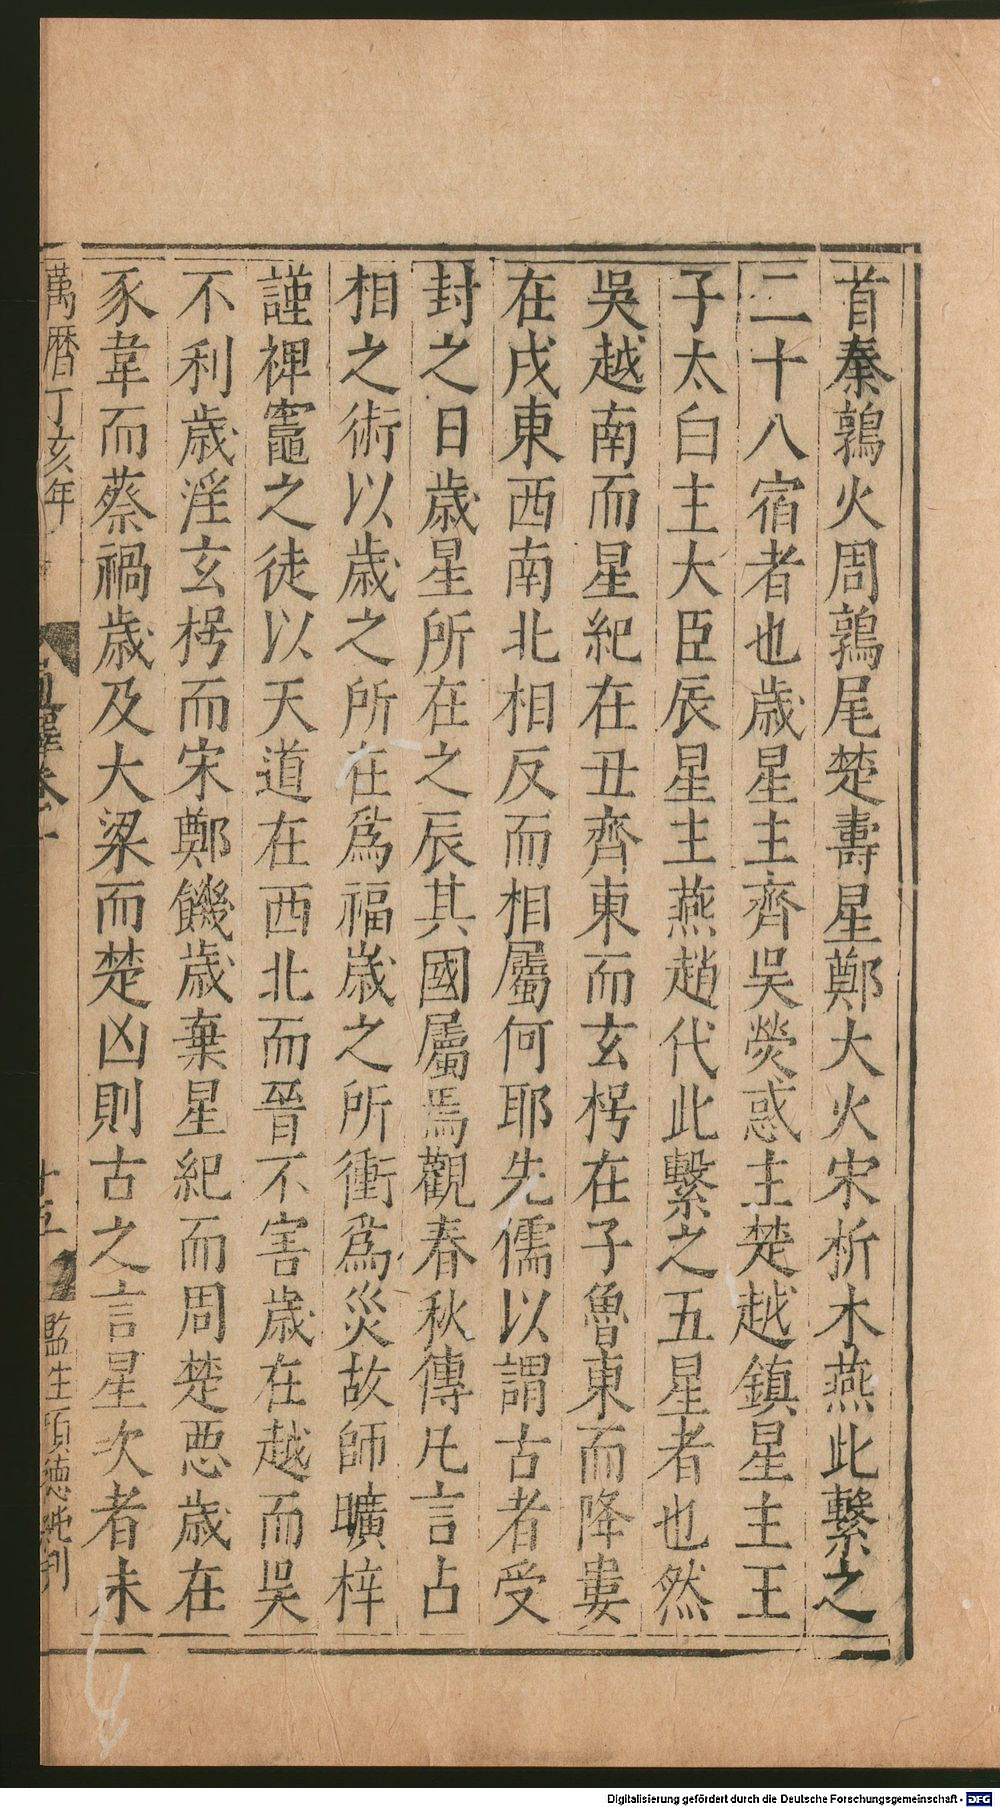 首秦鶉火周鶉尾楚壽星鄭大火宋析木燕此繫之
二十八宿者也歲星主齊吳熒惑主楚越鎮星主王
子太白主大臣辰星主燕趙代此繫之五星者也然
吳越南而星紀在丑齊東而玄枵在子魯東而降婁
在戌東西南北相反而相屬何耶先儒以謂古者受
封之日歲星所在之辰其國屬焉觀春秋傳凡言占
相之術以歲之所在爲福歲之所衝爲災故師曠梓
謹裨竈之徒以天道在西北而晉不害歲在越而吳
不利歲淫玄枵而宋鄭饑歲棄星紀而周楚惡歲在
豕韋而蔡禍歲及大梁而楚凶則古之言星次者未
萬曆丁亥年
卷十
十五
監生項德純刊
Digitalisierung gefördert durch die Deutsche Forschungsgemeinschaft - DFG